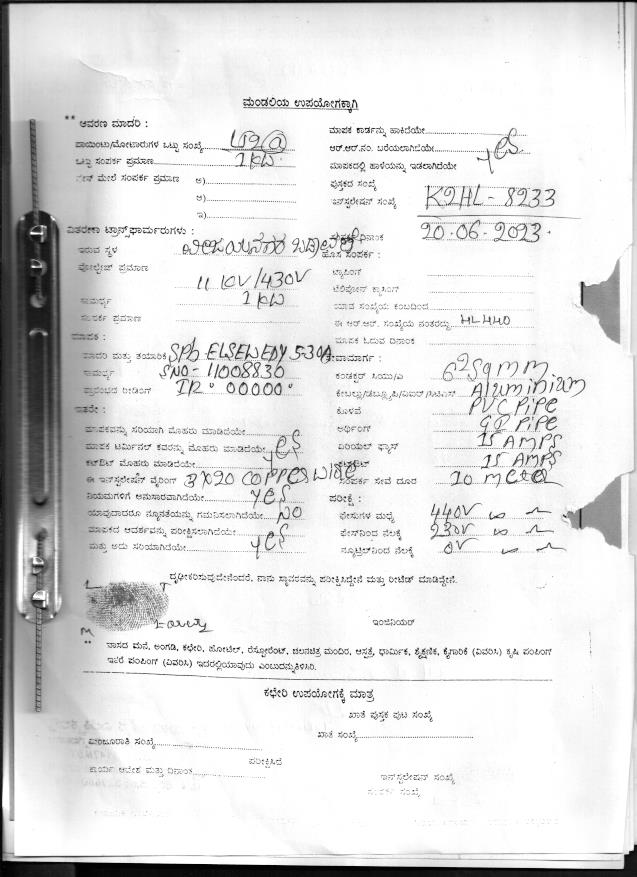 ಮಂಡಲಿಯ ಉಪಯೋಗಕ್ಕಾಗಿ
** ಆವರಣ ಮಾದರಿ :
ಪಾಯಿಂಟು/ಮೋಟಾರುಗಳ ಒಟ್ಟು ಸಂಖ್ಯೆ
ಒಟ್ಟು ಸಂಪರ್ಕ ಪ್ರಮಾಣ 1 KW
ಮೇಲೆ ಸಂಪರ್ಕ ಪ್ರಮಾಣ ಅ)
ಆ)
ಇ)
ವಿತರಣಾ ಟ್ರಾನ್ಸ್‌ಫಾರ್ಮರುಗಳು :
ಇರುವ ಸ್ಥಳ
ವೋಲ್ಟೇಜ್ ಪ್ರಮಾಣ 11 KV/430V
ಸಾಮರ್ಥ್ಯ 1 KW
ಸಂಪರ್ಕ ಪ್ರಮಾಣ
ಮಾಪಕ :
ಮಾದರಿ ಮತ್ತು ತಯಾರಿಕೆ SPb ELSEWEDY 5-30A
ಸಾಮರ್ಥ್ಯ SNO-11008830
ಪ್ರಾರಂಭದ ರೀಡಿಂಗ್ IR 00000
ಇತರೇ :
ಮಾಪಕವನ್ನು ಸರಿಯಾಗಿ ಮೊಹರು ಮಾಡಿದೆಯೇ
ಮಾಪಕ ಟರ್ಮಿನಲ್ ಕವರನ್ನು ಮೊಹರು ಮಾಡಿದೆಯೇ yes
ಕಟ್‌ಔಟ್ ಮೊಹರು ಮಾಡಿದೆಯೇ
ಈ ಇನ್‌ಸ್ಟಲೇಷನ್ ವೈರಿಂಗ್ 3X20 COPPER WIRE
ನಿಯಮಗಳಿಗೆ ಅನುಸಾರವಾಗಿದೆಯೇ yes
ಯಾವುದಾದರೂ ನ್ಯೂನತೆಯನ್ನು ಗಮನಿಸಲಾಗಿದೆಯೇ NO
ಮಾಪಕದ ಆದರ್ಶವನ್ನು ಪರೀಕ್ಷಿಸಲಾಗಿದೆಯೇ
ಮತ್ತು ಅದು ಸರಿಯಾಗಿದೆಯೇ yes
ಮಾಪಕ ಕಾರ್ಡನ್ನು ಹಾಕಿದೆಯೇ
ಆರ್.ಆರ್.ನಂ. ಬರೆಯಲಾಗಿದೆಯೇ yes
ಮಾಪಕದಲ್ಲಿ ಹಾಳೆಯನ್ನು ಇಡಲಾಗಿದೆಯೇ
ಪುಸ್ತಕದ ಸಂಖ್ಯೆ
ಇನ್‌ಸ್ಟಲೇಷನ್ ಸಂಖ್ಯೆ K2HL-8233
ದಿನಾಂಕ 20-06-2023
ಹೊಸ ಸಂಪರ್ಕ :
ಟ್ಯಾಪಿಂಗ್
ಟೆಲಿಫೋನ್ ಕ್ರಾಸಿಂಗ್
ಯಾವ ಸಂಖ್ಯೆಯ ಕಂಬದಿಂದ
ಈ ಆರ್.ಆರ್. ಸಂಖ್ಯೆಯ ನಂತರದ್ದು HL440
ಮಾಪಕ ಓದುವ ದಿನಾಂಕ
ಸೇವಾಮಾರ್ಗ :
ಕಂಡಕ್ಟರ್ ಸಿಯು/ಎ 6 2Sqmm
Aluminium
ಕೊಳವೆ PVC PIPE
ಅರ್ಥಿಂಗ್ GI PIPE
ಏರಿಯಲ್ ಫ್ಯೂಸ್ 15 AMPS
ಕಟ್‌ಔಟ್ 15 AMPS
ಸಂಪರ್ಕ ಸೇವೆ ದೂರ 10 meter
ಪರೀಕ್ಷೆ :
ಫೇಸುಗಳ ಮಧ್ಯೆ 440V
ಫೇಸ್‌ನಿಂದ ನೆಲಕ್ಕೆ 230V
ನ್ಯೂಟ್ರಲ್‌ನಿಂದ ನೆಲಕ್ಕೆ 0V
ದೃಢೀಕರಿಸುವುದೇನೆಂದರೆ, ನಾನು ಸ್ಥಾವರವನ್ನು ಪರೀಕ್ಷಿಸಿದ್ದೇನೆ ಮತ್ತು ರೀಟೆಡ್ ಮಾಡಿದ್ದೇನೆ.
ಇಂಜಿನಿಯರ್
** ವಾಸದ ಮನೆ, ಅಂಗಡಿ, ಕಛೇರಿ, ಹೋಟೆಲ್, ರೆಸ್ಟೋರೆಂಟ್, ಚಲನಚಿತ್ರ ಮಂದಿರ, ಆಸ್ಪತ್ರೆ, ಧಾರ್ಮಿಕ, ಶೈಕ್ಷಣಿಕ, ಕೈಗಾರಿಕೆ (ವಿವರಿಸಿ) ಕೃಷಿ ಪಂಪಿಂಗ್
ಇತರೆ ಪಂಪಿಂಗ್ (ವಿವರಿಸಿ) ಇದರಲ್ಲಿಯಾವುದು ಎಂಬುದನ್ನುತಿಳಿಸಿರಿ.
ಕಛೇರಿ ಉಪಯೋಗಕ್ಕೆ ಮಾತ್ರ
ಖಾತೆ ಪುಸ್ತಕ ಪುಟ ಸಂಖ್ಯೆ
ಮಂಜೂರಾತಿ ಸಂಖ್ಯೆ
ಖಾತೆ ಸಂಖ್ಯೆ
ಪರೀಕ್ಷಿಸಿದೆ
ಕಾರ್ಯ ಆದೇಶ ಮತ್ತು ದಿನಾಂಕ
ಇನ್‌ಸ್ಟಲೇಷನ್ ಸಂಖ್ಯೆ
ಸಂಪರ್ಕ ಸಂಖ್ಯೆ